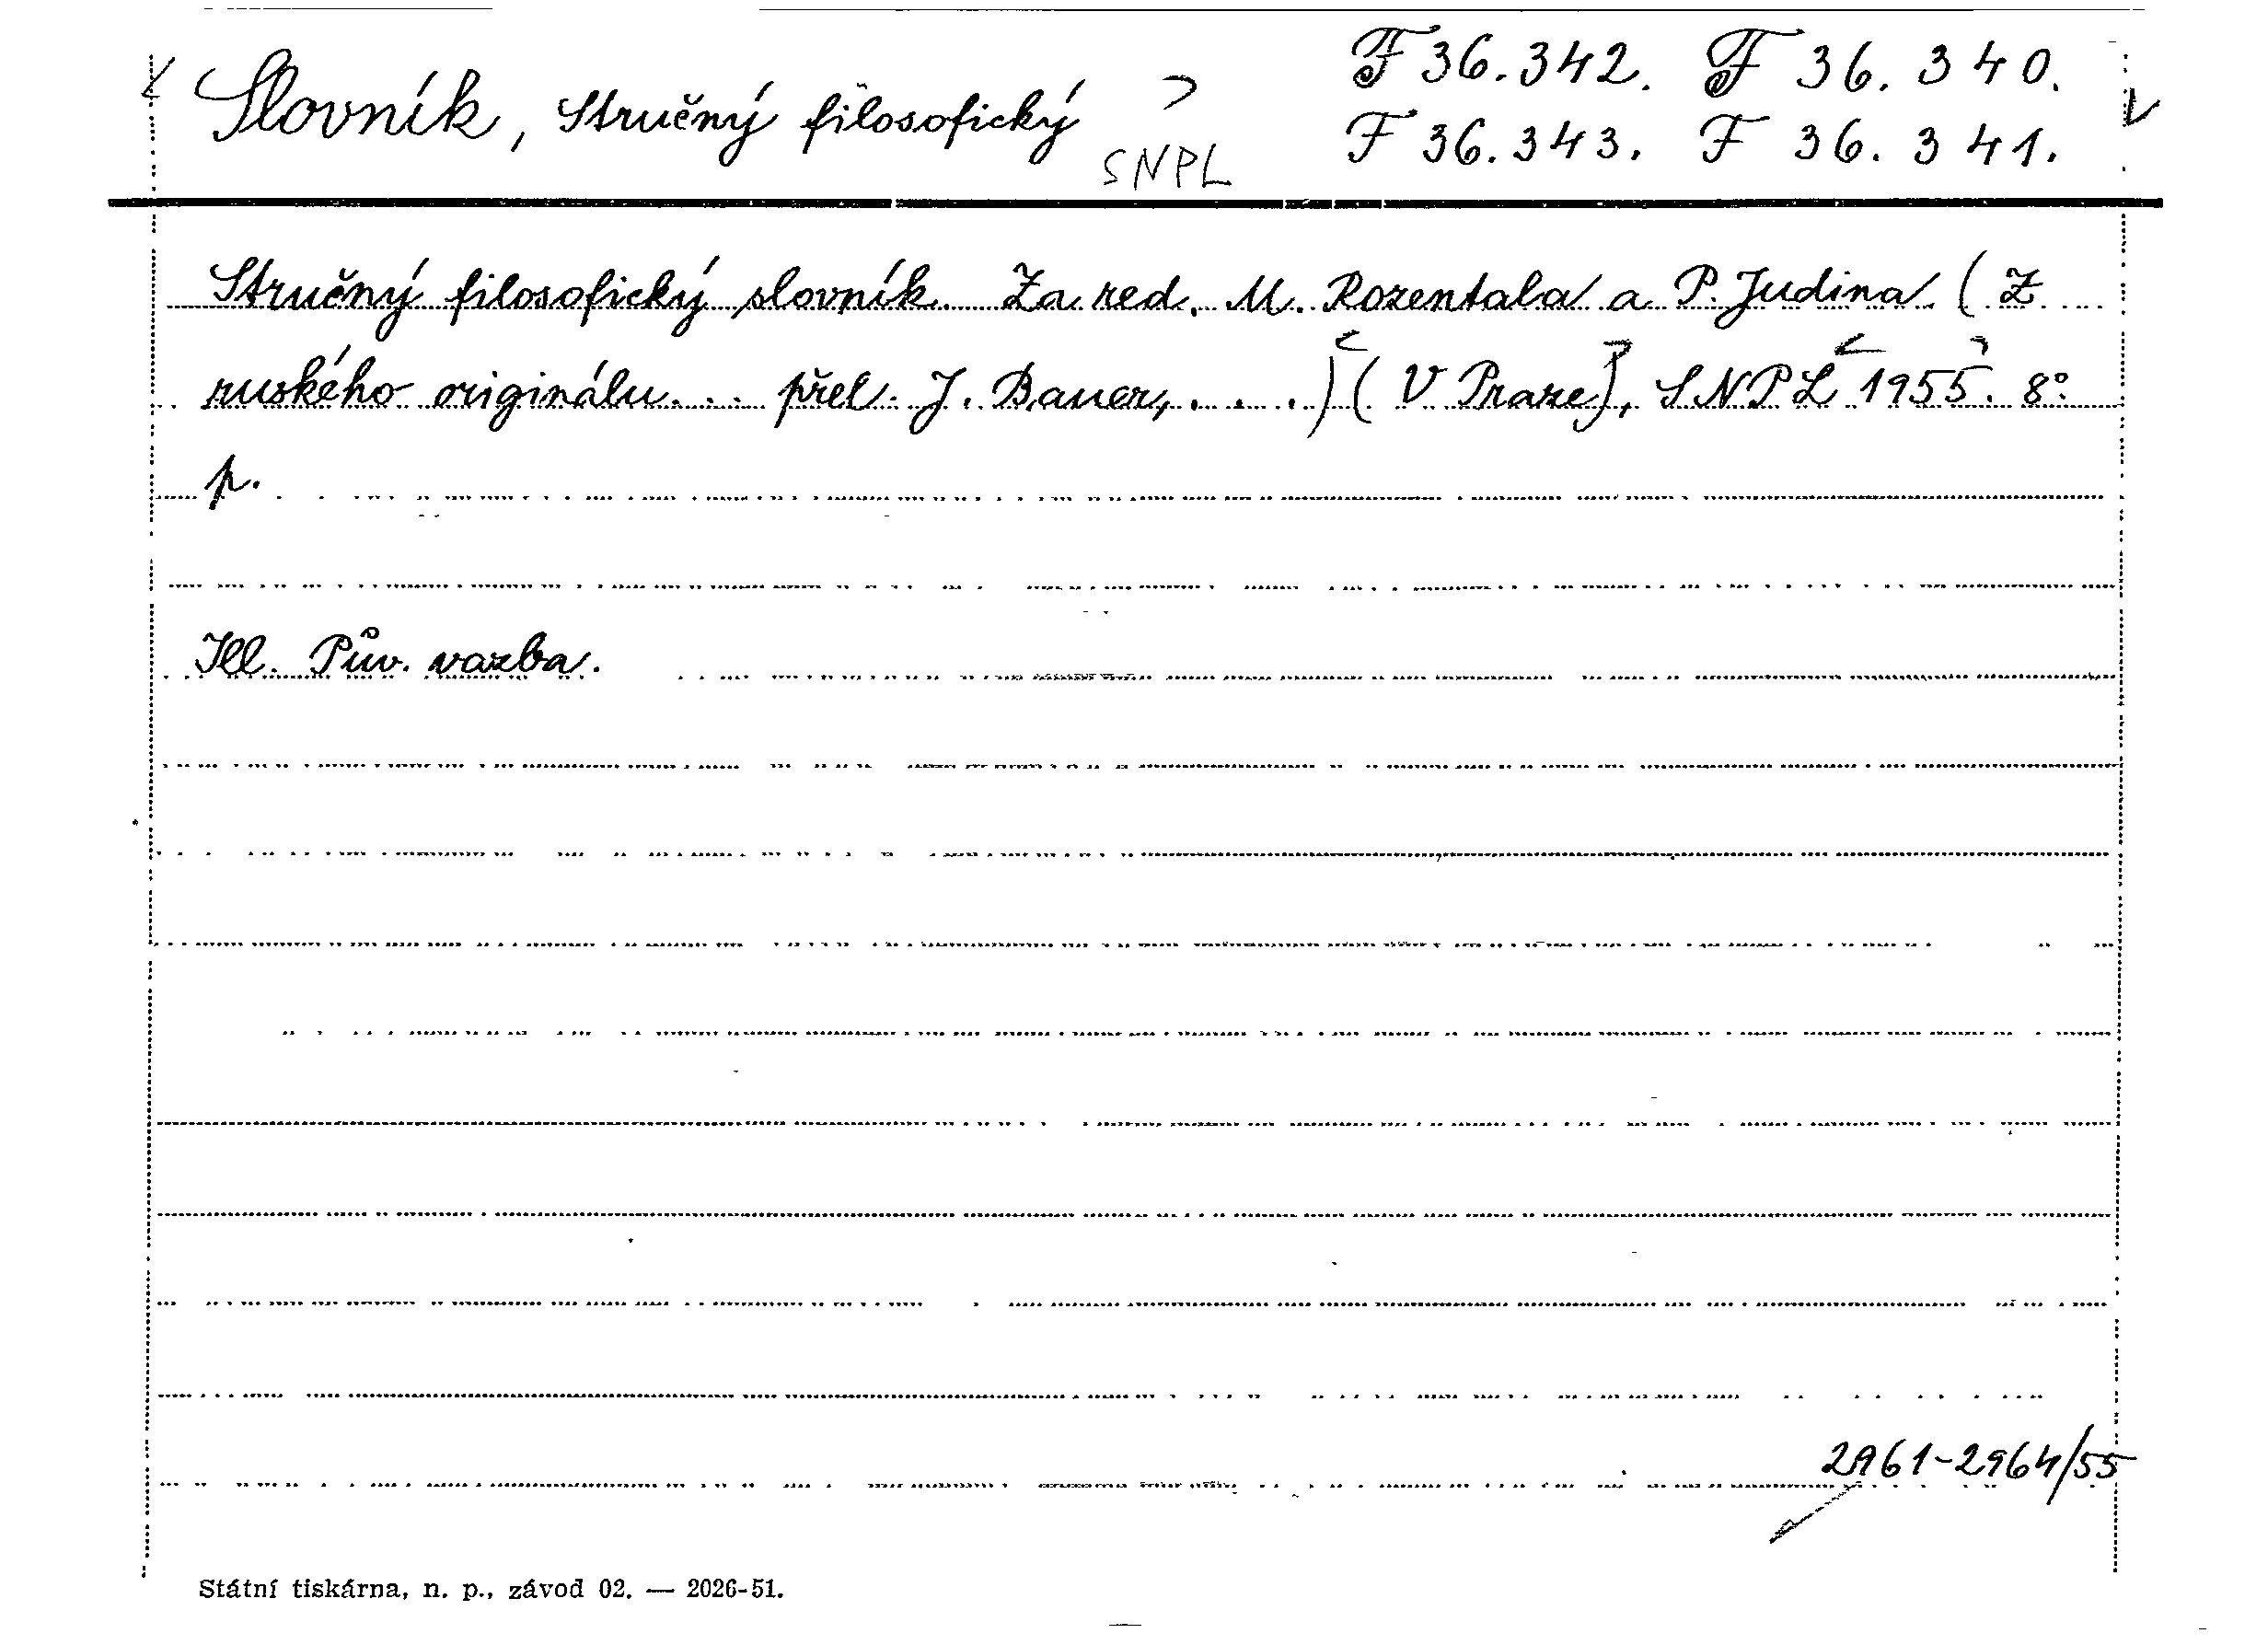 Slovník, Stručný filosofický
F 36.342. F 36.340.
F 36.343. F 36.341.
SNPL
Stručný filosofický slovník. Za red. M. Rozentala a P. Judina. (Z
ruského originálu... přel. J. Bauer, ...) (V Praze), SNPL 1955. 8°
p.
Ill. Pův. vazba.
2961-2964/55
Státní tiskárna, n. p., závod 02. — 2026-51.